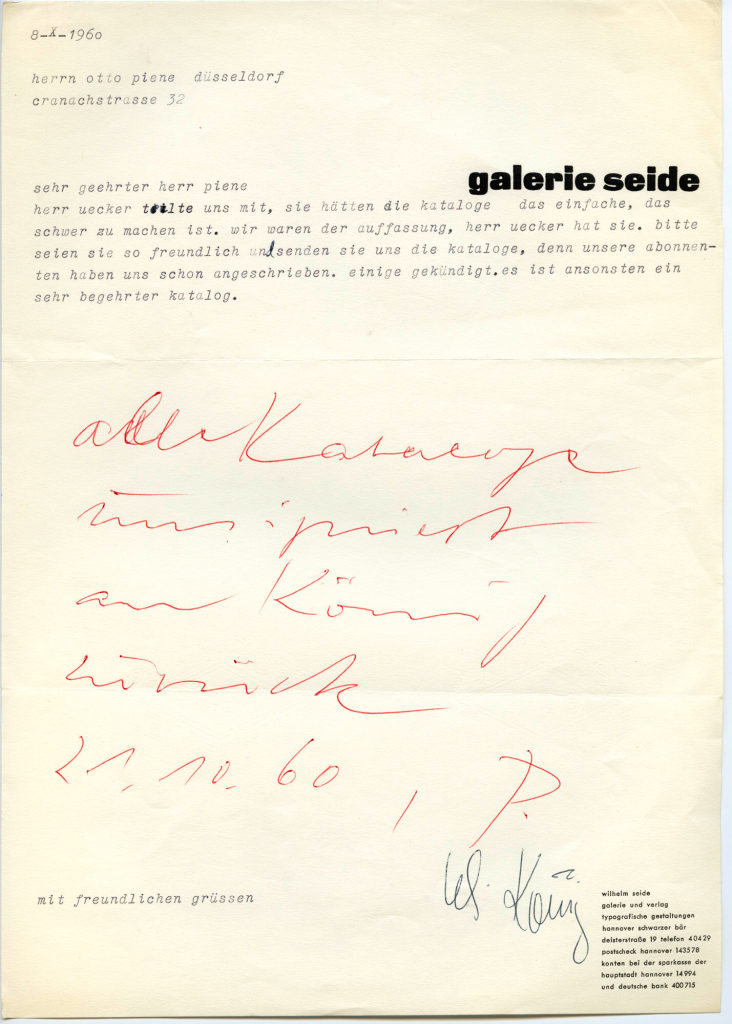 8-X-1960
herrn otto piene düsseldorf
cranachstrasse 32
galerie seide
sehr geehrter herr piene
herr uecker teilte uns mit, sie hätten die kataloge das einfache, das
schwer zu machen ist. wir waren der auffassung, herr uecker hat sie. bitte
seien sie so freundlich und senden sie uns die kataloge, denn unsere abonnen-
ten haben uns schon angeschrieben. einige gekündigt.es ist ansonsten ein
sehr begehrter katalog.
alle Kataloge
unsigniert
an König
zurück
21.10.60, P.
mit freundlichen grüssen
König
wilhelm seide
galerie und verlag
typografische gestaltungen
hannover schwarzer bär
deisterstraße 19 telefon 40429
postscheck hannover 143578
konten bei der sparkasse der
hauptstadt hannover 14994
und deutsche bank 400715